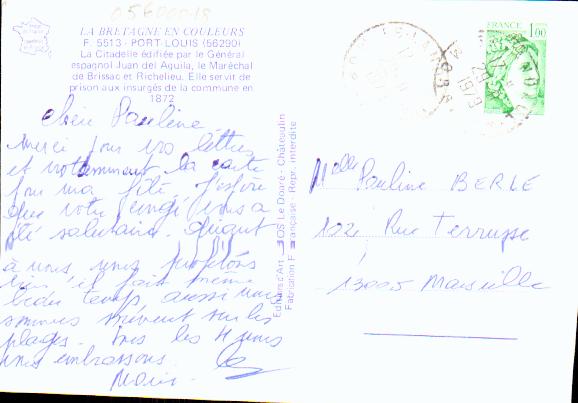 056000-18
LA BRETAGNE EN COULEURS
F. 5513 - PORT-LOUIS (56290)
La Citadelle édifiée par le Général
espagnol Juan del Aguila, le Maréchal
de Brissac et Richelieu. Elle servit de
prison aux insurgés de la commune en
1872
Chère Pauline
Merci pour vos lettres
et notamment la carte
pour ma fête. J'espère
que votre congé vous a
été salutaire. Quant
à nous, nous profitons
il fait même
beau temps, aussi nous
sommes souvent sur les
plages. Tous les 4 jeunes
vous embrassons.
Editions d'Art JOS Le Doaré - Châteaulin
Fabrication Française Repr. interdite
FRANCE
1,00
29
1979
Melle Pauline BERLE
122 Rue Terrusse
13005 Marseille